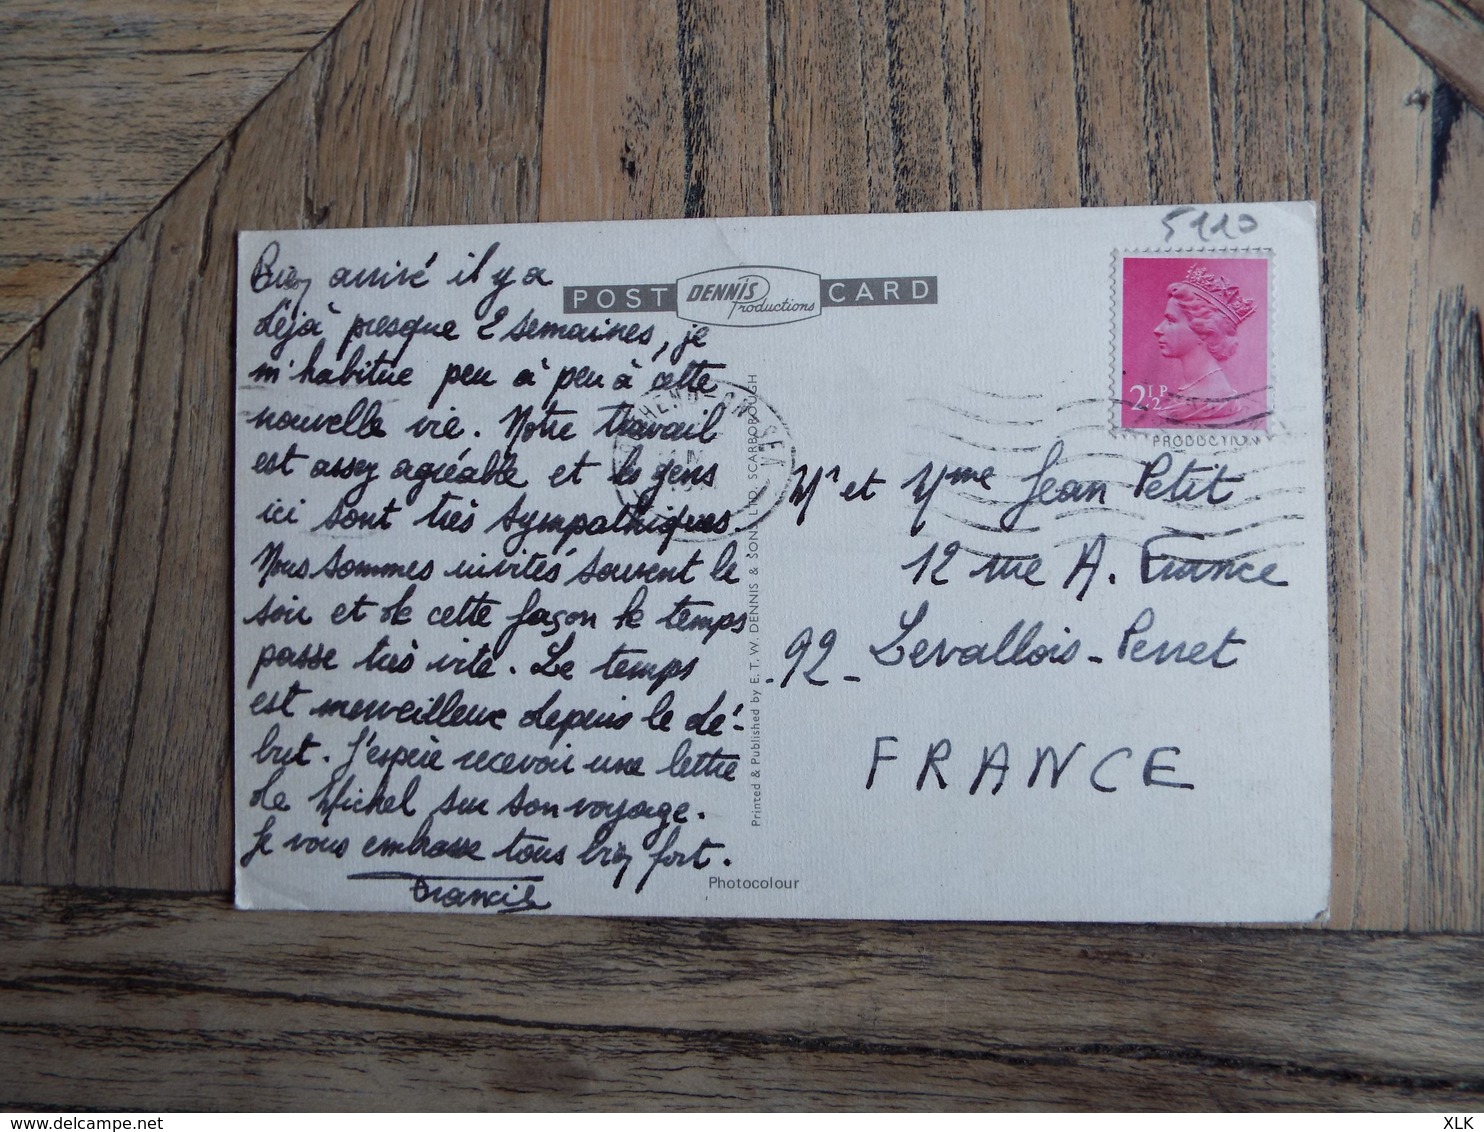 5110
POST DENNIS Productions CARD
Bien arrivé il y a
déjà presque 2 semaines, je
m'habitue peu à peu à cette
nouvelle vie. Notre travail
est assez agréable et les gens
ici sont très sympathiques.
Nous sommes invités souvent le
soir et de cette façon le temps
passe très vite. Le temps
est merveilleux depuis le dé-
but. J'espère recevoir une lettre
de Michel sur son voyage.
Je vous embrasse tous bien fort.
Francis
2½P
PRODUCTION
Mr et Mme Jean Petit
12 rue A. France
92 - Levallois-Perret
FRANCE
Printed & Published by E. T. W. DENNIS & SONS LTD. SCARBOROUGH
Photocolour
XLK